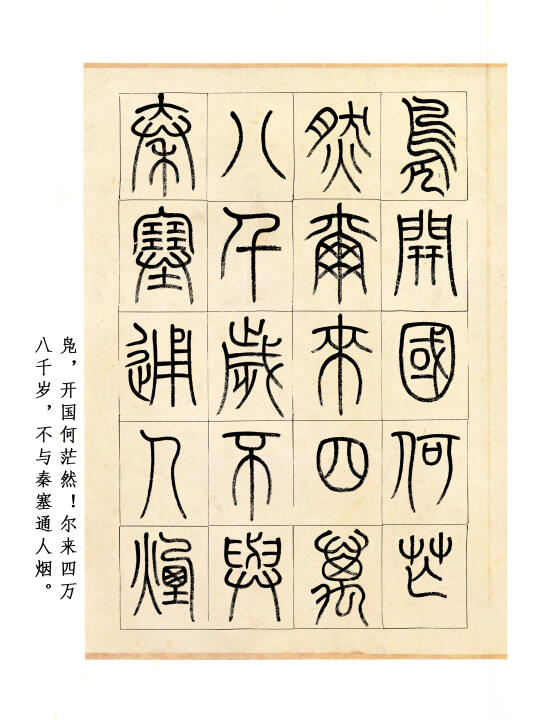 鳧開國何芒
然爾來四萬
八千歲不與
秦塞通人煙
凫，开国何茫然！尔来四万
八千岁，不与秦塞通人烟。